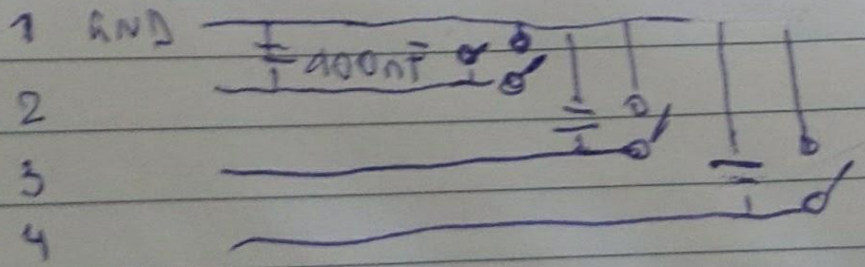 1 GND
100nF
2
3
4